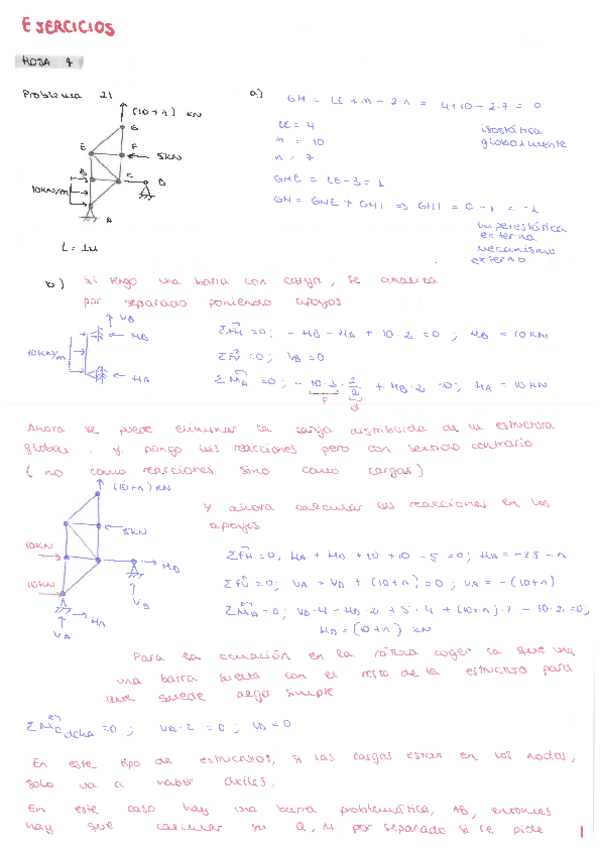 EJERCICIOS
HOJA 7
Problema 21
(10+n) KN
G
E
F
5KN
B
C
D
10KN/m
A
L = 1m
a)
GH = LE + m - 2·n = 4+10-2·7 = 0
LE = 4
m = 10
n = 7
isostática
globalmente
GHE = LE-3 = 1
GH = GHE + GHI => GHI = 0-1 = -1
hiperestática
externa
mecanismo
externo
b) Si tengo una barra con carga, se analiza
por separado poniendo apoyos
VB
HB
10KN/m
HA
ΣFH =0; - HB - HA + 10·2 =0; HB = 10KN
ΣFV =0; VB =0
ΣMA =0; - 10·2 · 2/2 + HB·2 =0; HA = 10KN
F
d
Ahora se puede eliminar la carga distribuida de la estructura
global, y pongo las reacciones pero con sentido contrario
(no como reacciones sino como cargas)
(10+n) KN
5KN
10KN
10KN
HD
VD
HA
VA
Y ahora calcular las reacciones en los
apoyos
ΣFH =0; HA + HD + 10 + 10 - 5 =0; HA = -25-n
ΣFV =0; VA + VD + (10+n) =0; VA = -(10+n)
ΣMA =0; VD·4 - HD·2 + 5·4 + (10+n)·2 - 10·2 =0;
HD = (10+n) KN
Para la ecuación en la rótula coger la que una
una barra suelta con el resto de la estructura para
que quede algo simple
ΣMC dcha =0; VD·2 = 0; VD = 0
En este tipo de estructuras, si las cargas están en los nodos,
solo va a haber axiles.
En este caso hay una barra problemática, AB, entonces
hay que calcular su Q, M por separado si se pide
1